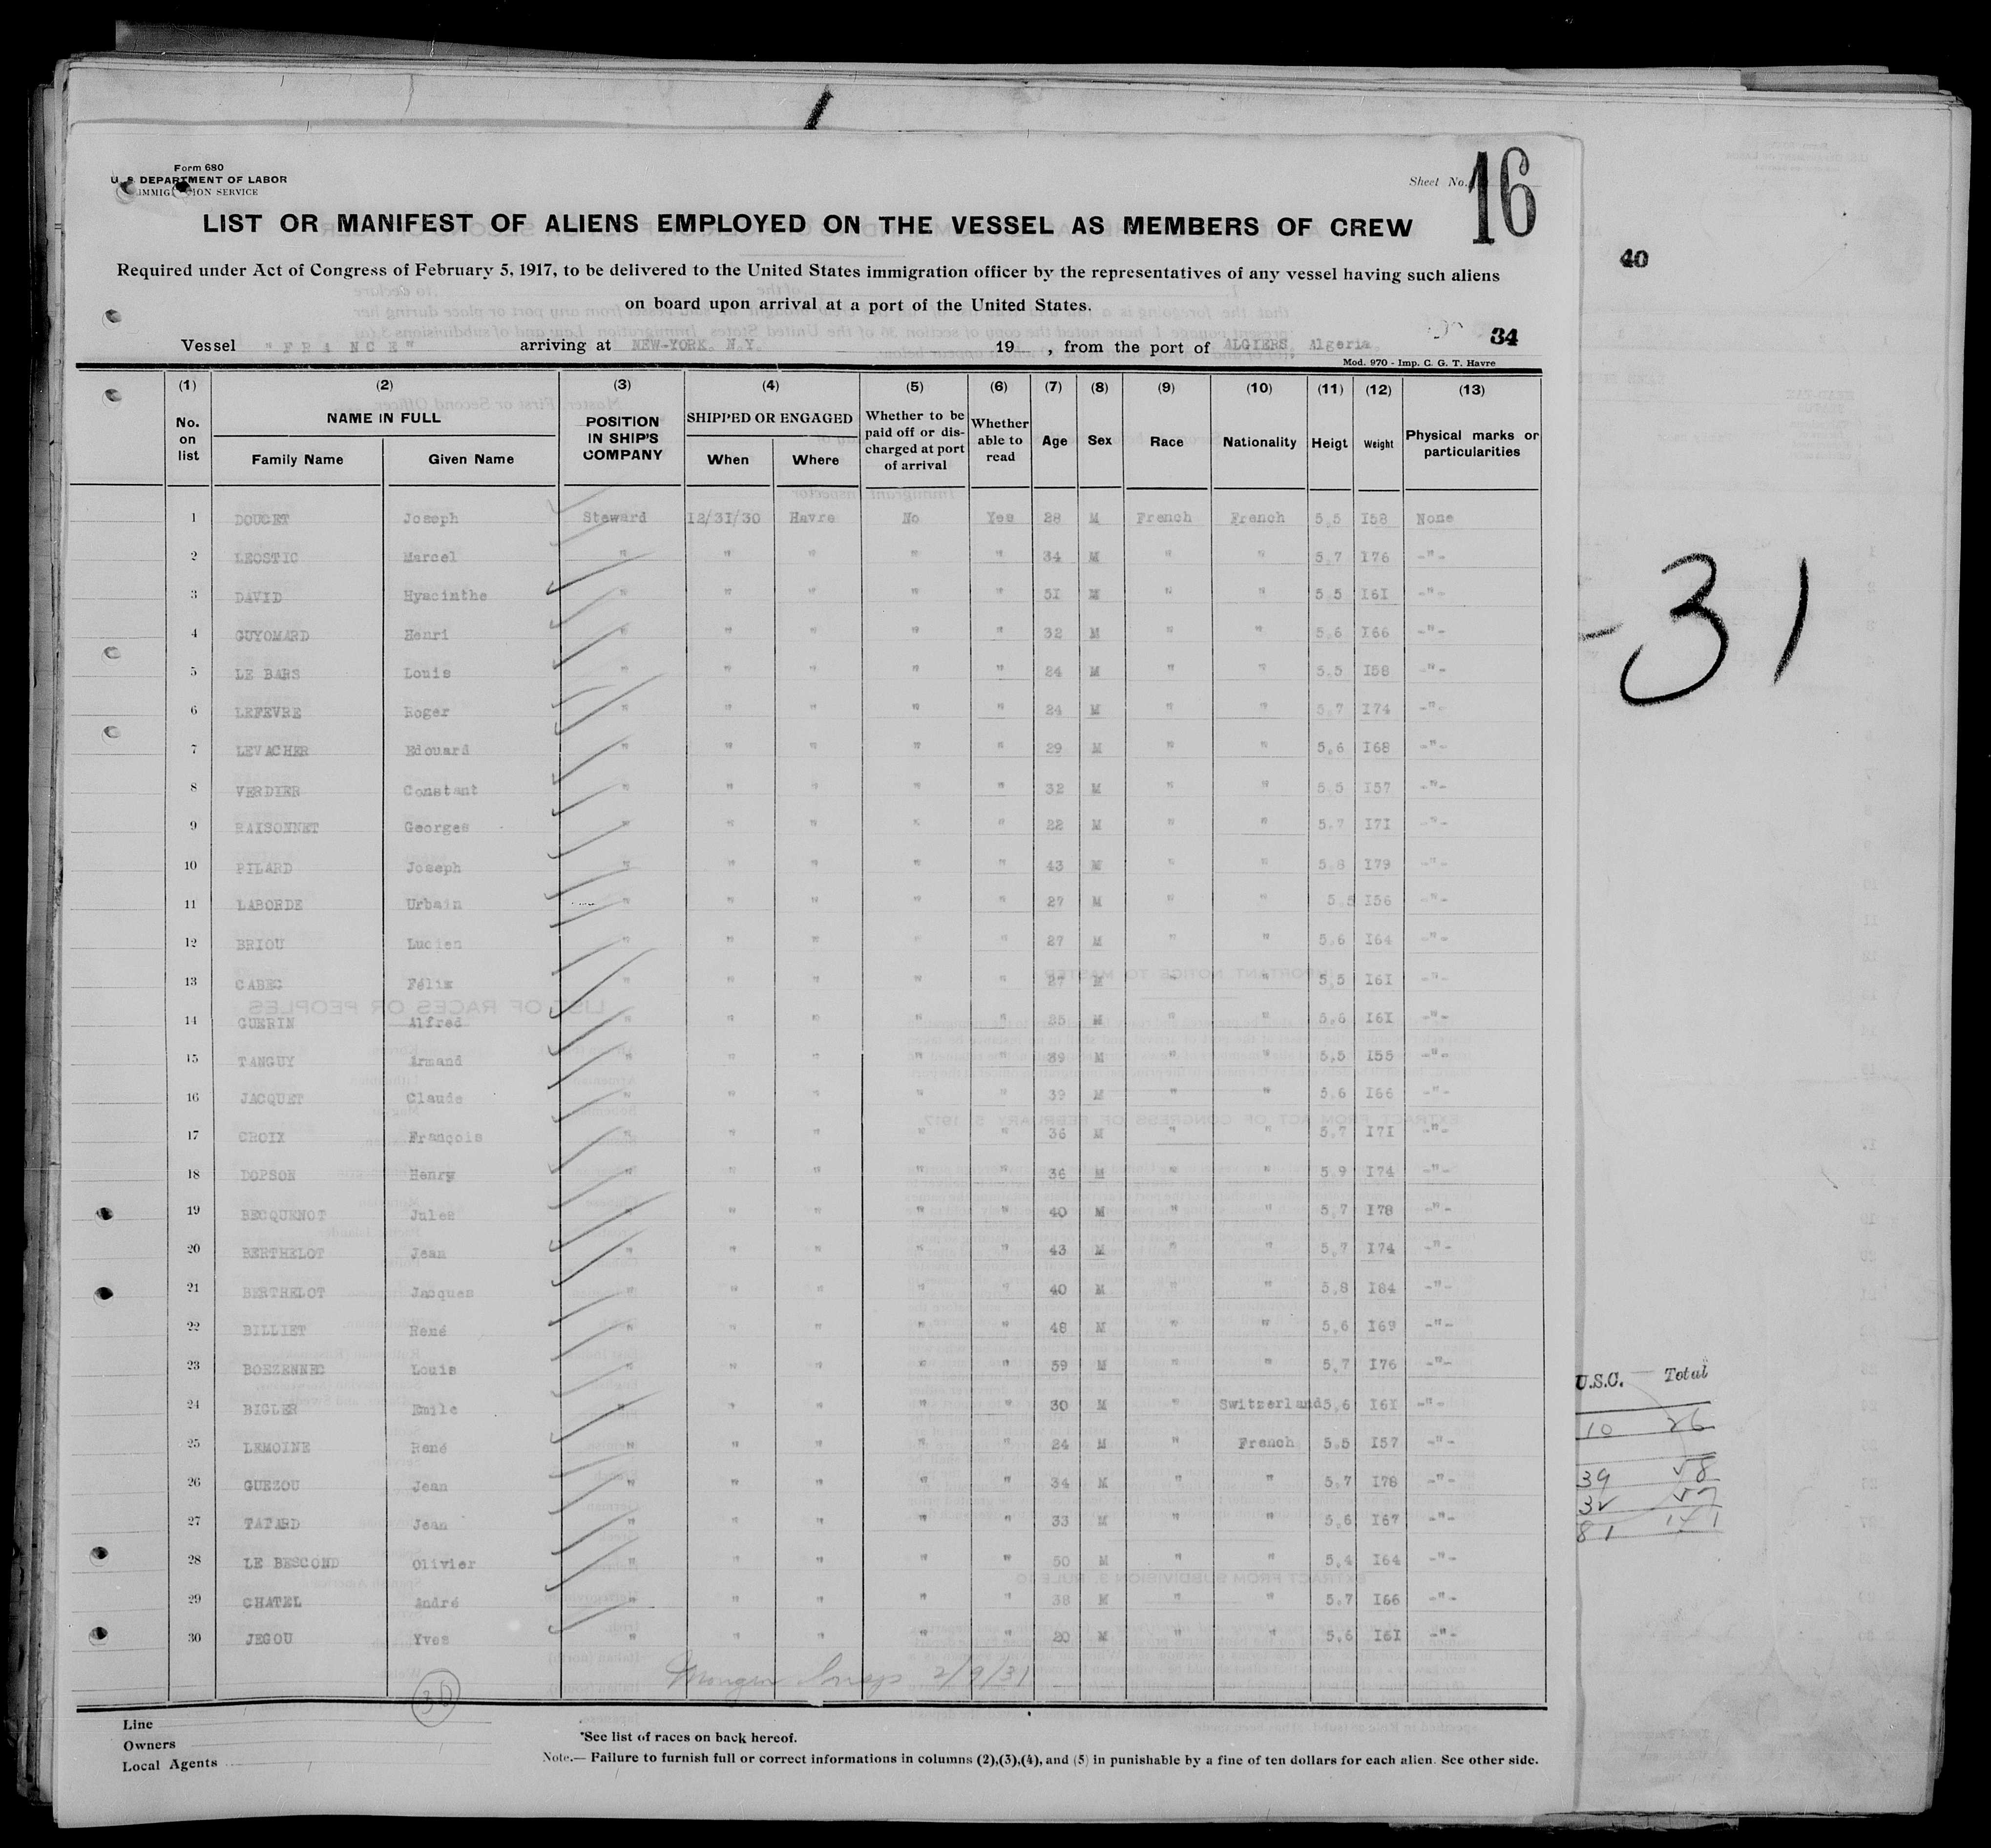 Form 680
U. S. DEPARTMENT OF LABOR
IMMIGRATION SERVICE
Sheet No. 16
LIST OR MANIFEST OF ALIENS EMPLOYED ON THE VESSEL AS MEMBERS OF CREW
40
Required under Act of Congress of February 5, 1917, to be delivered to the United States immigration officer by the representatives of any vessel having such aliens
on board upon arrival at a port of the United States.
34
Vessel "FRANCE" arriving at NEW-YORK. N.Y. 19 , from the port of ALGIERS, Algeria.
Mod. 970 - Imp. C. G. T. Havre
(1) (2) (3) (4) (5) (6) (7) (8) (9) (10) (11) (12) (13)
No. on list NAME IN FULL Family Name Given Name POSITION IN SHIP'S COMPANY SHIPPED OR ENGAGED When Where Whether to be paid off or discharged at port of arrival Whether able to read Age Sex Race Nationality Heigt Weight Physical marks or particularities
1 DOUCET Joseph Steward 12/31/30 Havre No Yes 28 M French French 5.5 158 None
2 LEOSTIC Marcel " " " " " 34 M " " 5.7 176 -"-
3 DAVID Hyacinthe " " " " " 51 M " " 5.5 161 -"-
4 GUYOMARD Henri " " " " " 32 M " " 5.6 166 -"-
5 LE BARS Louis " " " " " 24 M " " 5.5 158 -"-
6 LEFEVRE Roger " " " " " 24 M " " 5.7 174 -"-
7 LEVACHER Edouard " " " " " 29 M " " 5.6 168 -"-
8 VERDIER Constant " " " " " 32 M " " 5.5 157 -"-
9 RAISONNET Georges " " " " " 22 M " " 5.7 171 -"-
10 PILARD Joseph " " " " " 43 M " " 5.8 179 -"-
11 LABORDE Urbain " " " " " 27 M " " 5.5 156 -"-
12 BRIOU Lucien " " " " " 27 M " " 5.6 164 -"-
13 CABEC Félix " " " " " 27 M " " 5.5 161 -"-
14 GUERIN Alfred " " " " " 35 M " " 5.6 161 -"-
15 TANGUY Armand " " " " " 39 M " " 5.5 155 -"-
16 JACQUET Claude " " " " " 39 M " " 5.6 166 -"-
17 CROIX François " " " " " 36 M " " 5.7 171 -"-
18 DOPSON Henry " " " " " 36 M " " 5.9 174 -"-
19 BECQUENOT Jules " " " " " 40 M " " 5.7 178 -"-
20 BERTHELOT Jean " " " " " 43 M " " 5.7 174 -"-
21 BERTHELOT Jacques " " " " " 40 M " " 5.8 184 -"-
22 BILLIET René " " " " " 48 M " " 5.6 169 -"-
23 BOEZENNEC Louis " " " " " 59 M " " 5.7 176 -"-
24 BIGLER Emile " " " " " 30 M " Switzerland 5.6 161 -"-
25 LEMOINE René " " " " " 24 M " French 5.5 157 -"-
26 GUEZOU Jean " " " " " 34 M " " 5.7 178 -"-
27 TATARD Jean " " " " " 33 M " " 5.6 167 -"-
28 LE BESCOND Olivier " " " " " 50 M " " 5.4 164 -"-
29 CHATEL André " " " " " 38 M " " 5.7 166 -"-
30 JEGOU Yves " " " " " 20 M " " 5.6 161 -"-
Insp 2/9/31
30
-31
U.S.C. Total
10 26
39 58
32 57
81 141
Line
Owners
Local Agents
*See list of races on back hereof.
Note.— Failure to furnish full or correct informations in columns (2),(3),(4), and (5) in punishable by a fine of ten dollars for each alien. See other side.